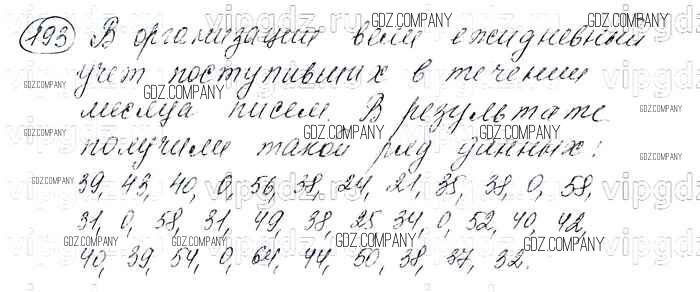 193 В организации вели ежидневный
учет поступивших в течении
месяца писем. В результате
получили такой ряд данных:
39, 43, 40, 0, 56, 38, 24, 21, 35, 38, 0, 58,
31, 0, 58, 31, 49, 38, 25 34, 0, 52, 40, 42,
40, 39, 54, 0, 64, 44, 50, 38, 37, 32.
GDZ.COMPANY
vipgdz.ru